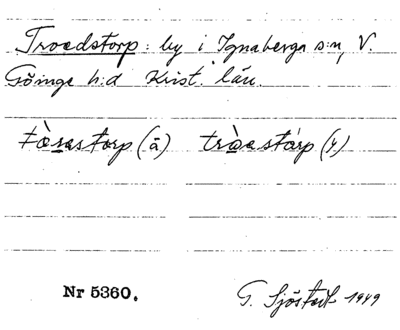 Troedstorp: by i Ignaberga s:n, V.
Göinge h:d Krist. län.
tò̱ra̱storp (ä) trò̱a̱stårp (y)
Nr 5360.
G. Sjöstedt 1949